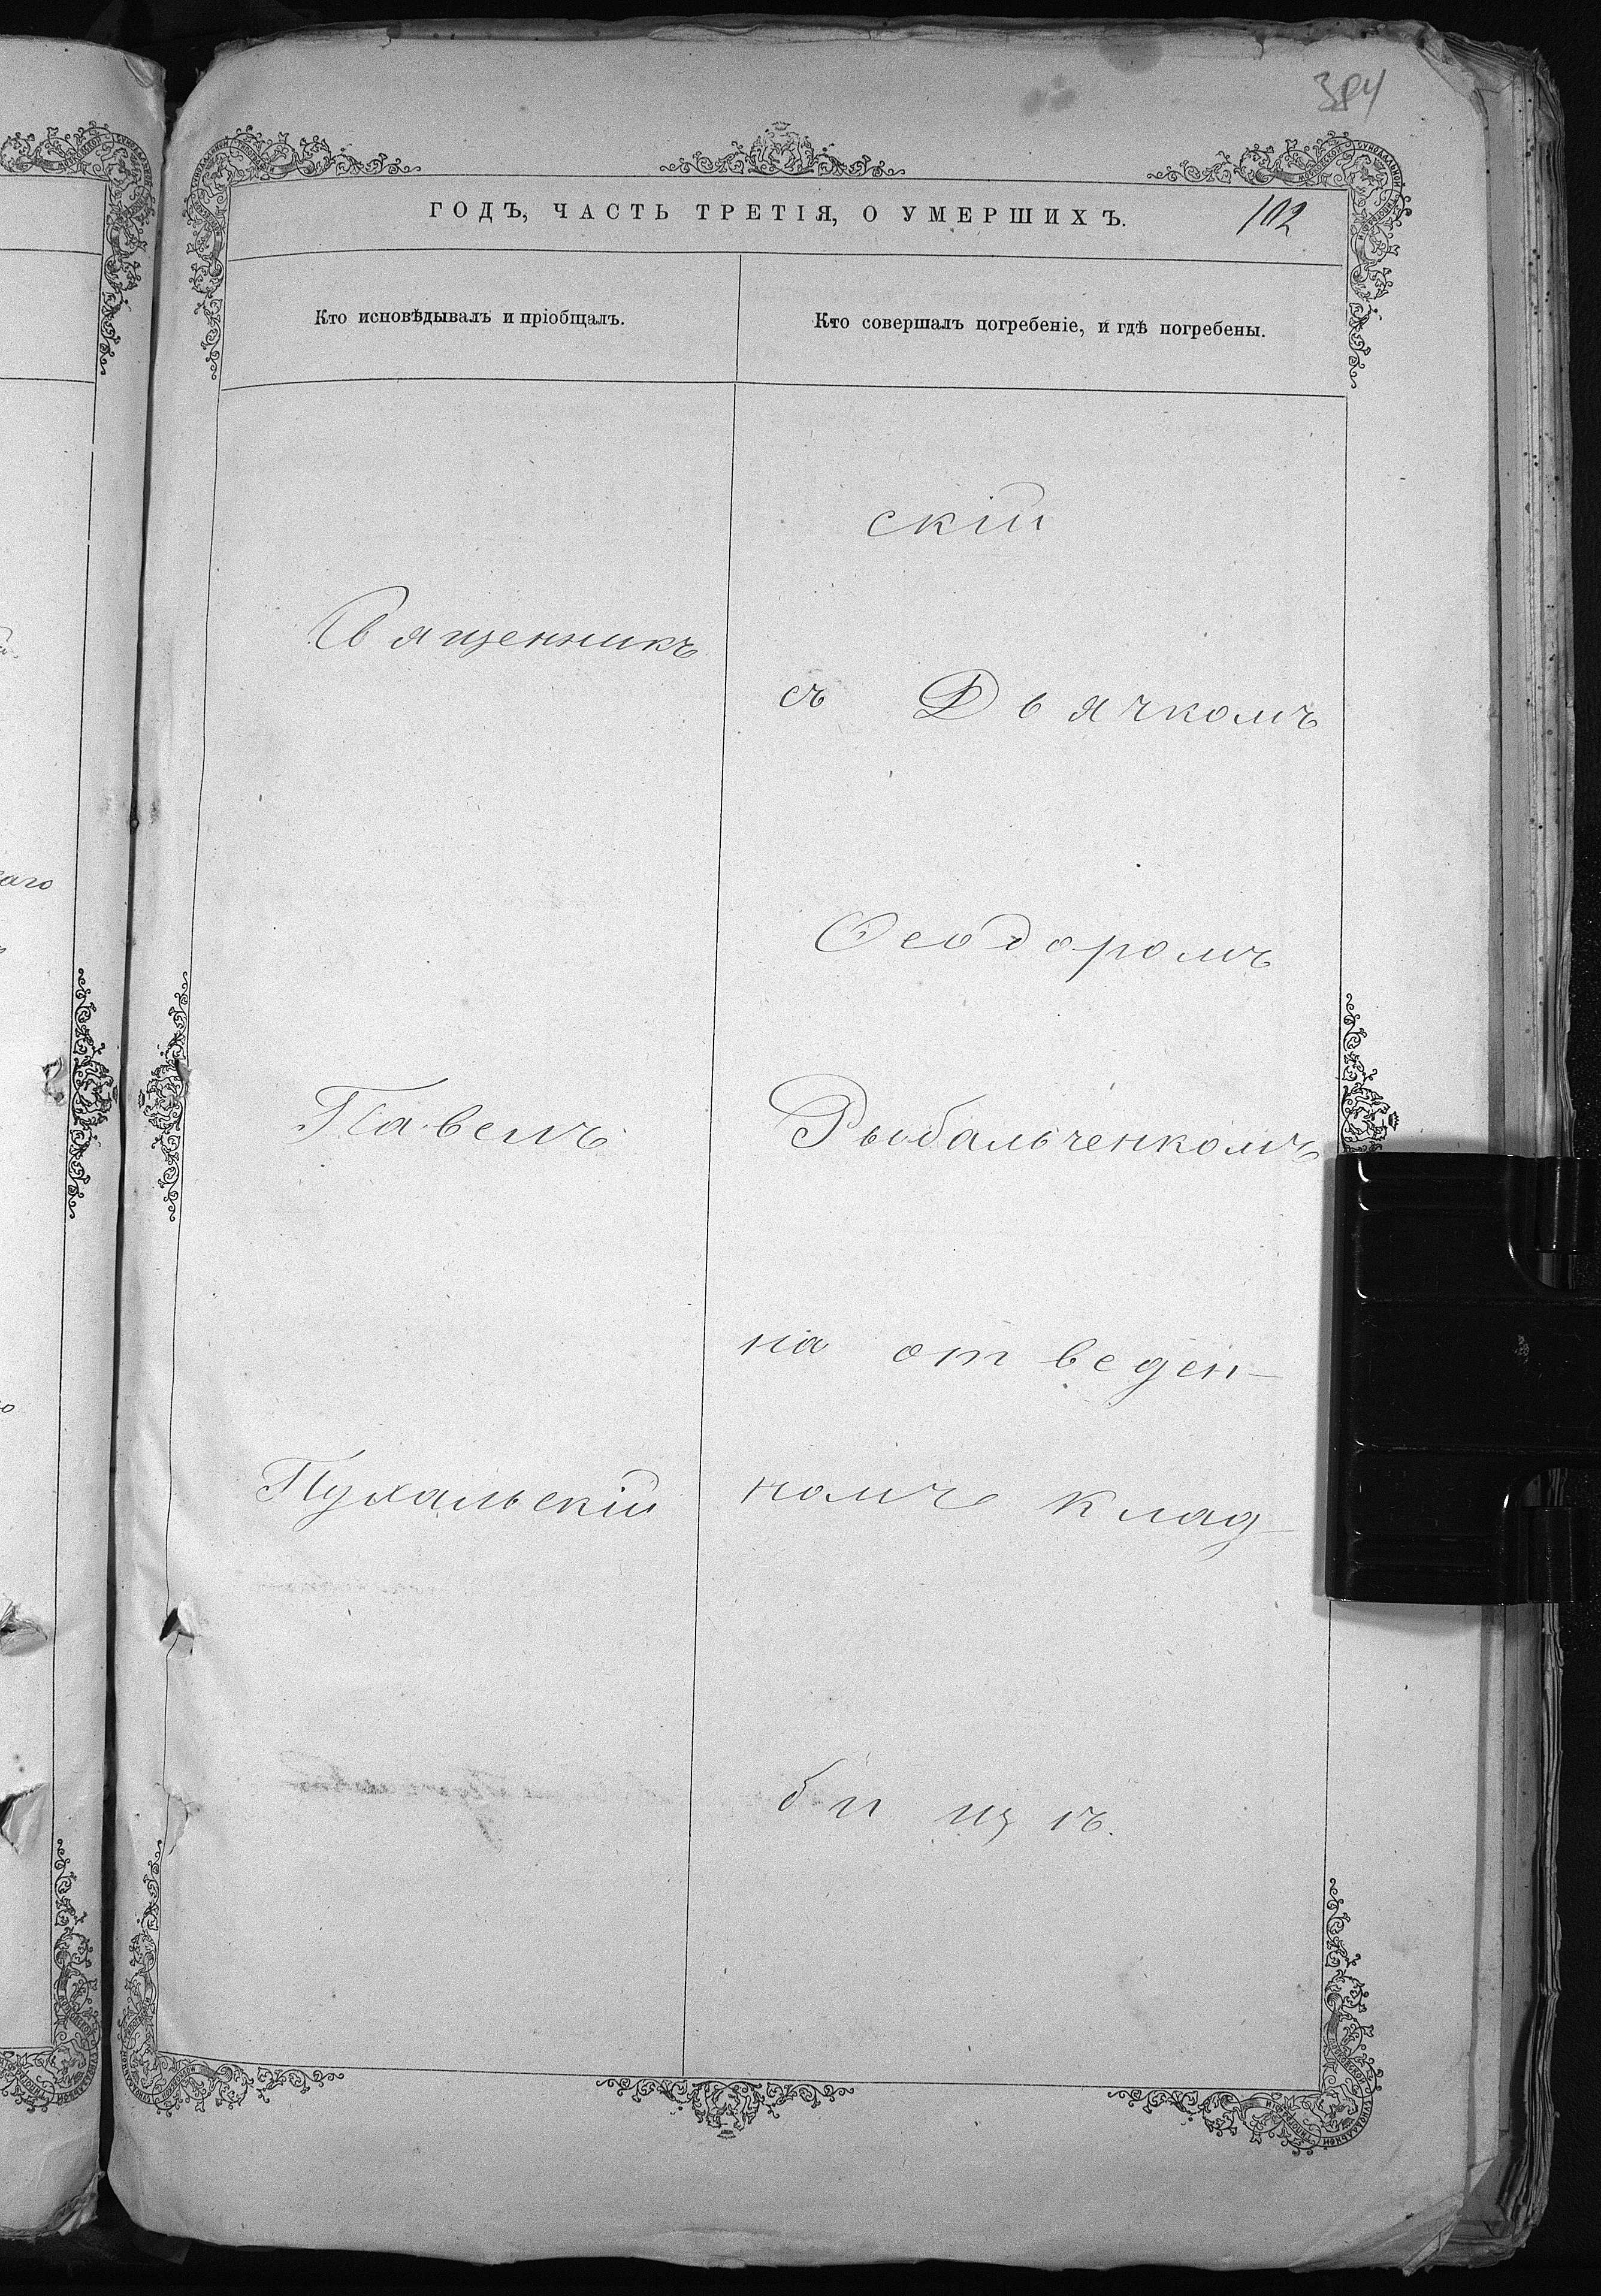 384
ГОДЪ, ЧАСТЬ ТРЕТІЯ, О УМЕРШИХЪ.
102
Кто исповѣдывалъ и пріобщалъ.
Кто совершалъ погребеніе, и гдѣ погребены.
Священникъ
Павелъ
Пухальскій
скій
съ Дьячкомъ
Ѳеодоромъ
Рыбальченкомъ
на отведен-
номъ клад-
бищѣ.
аго